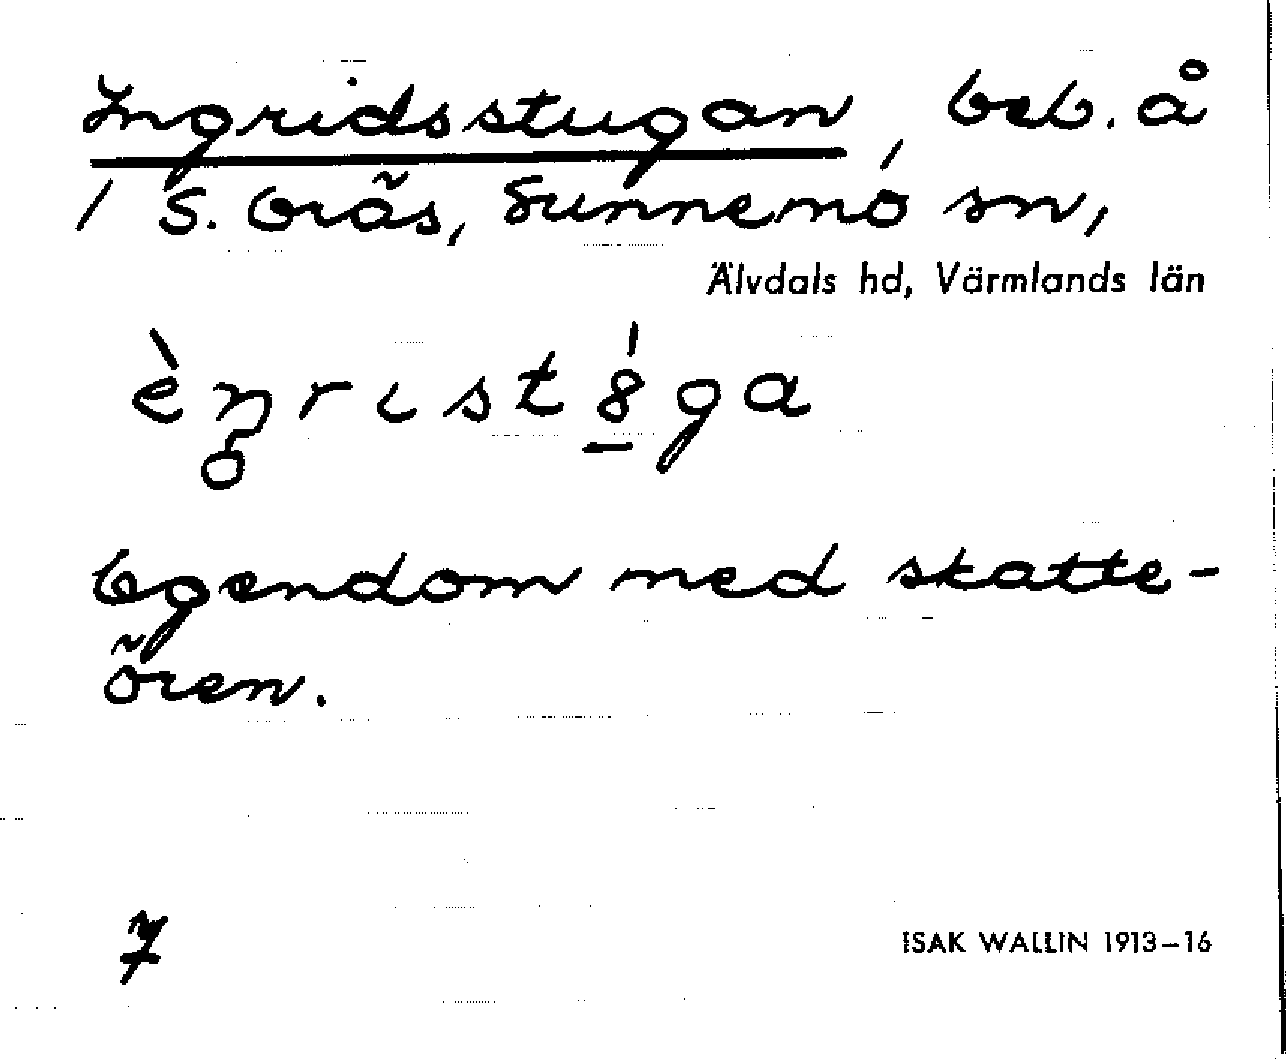 Ingridsstugan, beb. å
/ S. Gräs, Sunnemo sn,
Älvdals hd, Värmlands län
Egendom med skatte-
ören.
7
ISAK WALLIN 1913–16